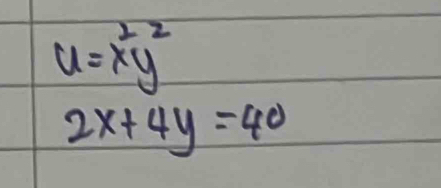 u = x²y²
2x + 4y = 40